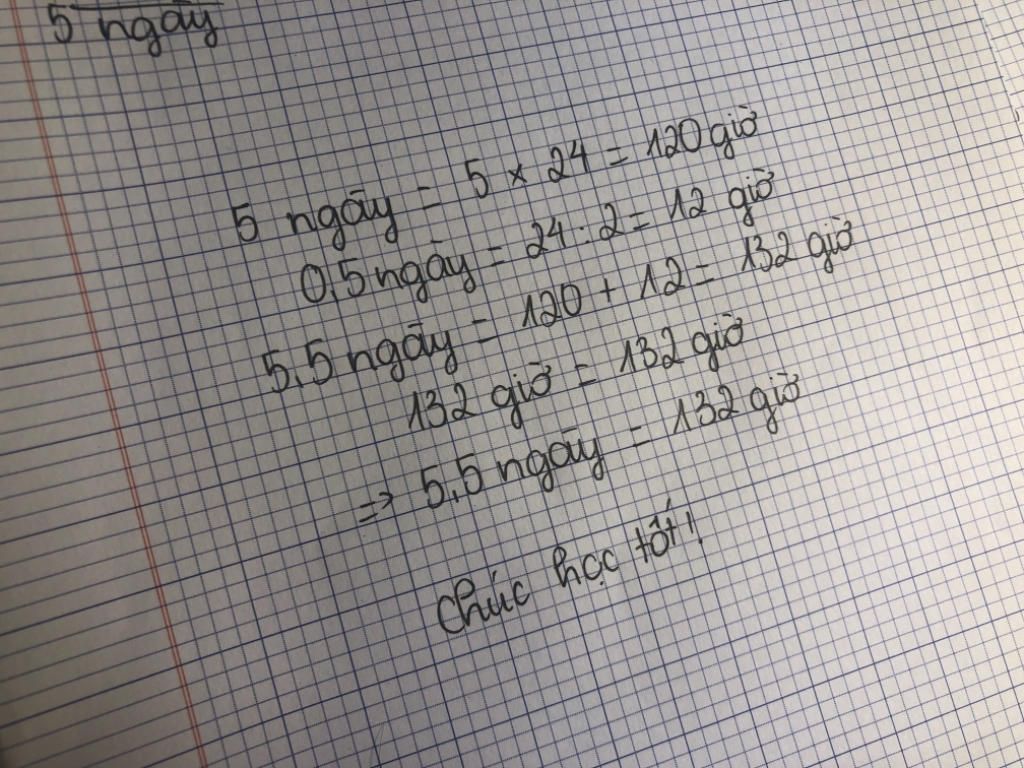 5 ngày
5 ngày = 5 × 24 = 120 giờ
0,5 ngày = 24 : 2 = 12 giờ
5,5 ngày = 120 + 12 = 132 giờ
132 giờ = 132 giờ
=> 5,5 ngày = 132 giờ
Chúc học tốt!